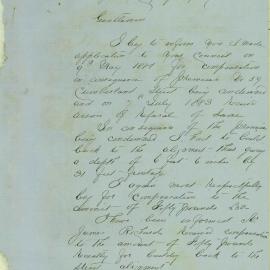 Gentlemen
I beg to inform you I made
application to your Council on
9th May 1899 for compensation
in consequence of Premises No 39
Cumberland Street being condemned
and on July 1893
of Refusal of Same
In consequence of the Premises
being condemned I had to build
back to the alignment that gives
a depth of 6 feet 6 inches by
31 feet frontage
I again most respectfully
beg for compensation to the
amount of Fifty Pounds £50
I have been informed Mr
James received compensation
to the amount of Fifty Pounds
Recently for building back to the
alignment